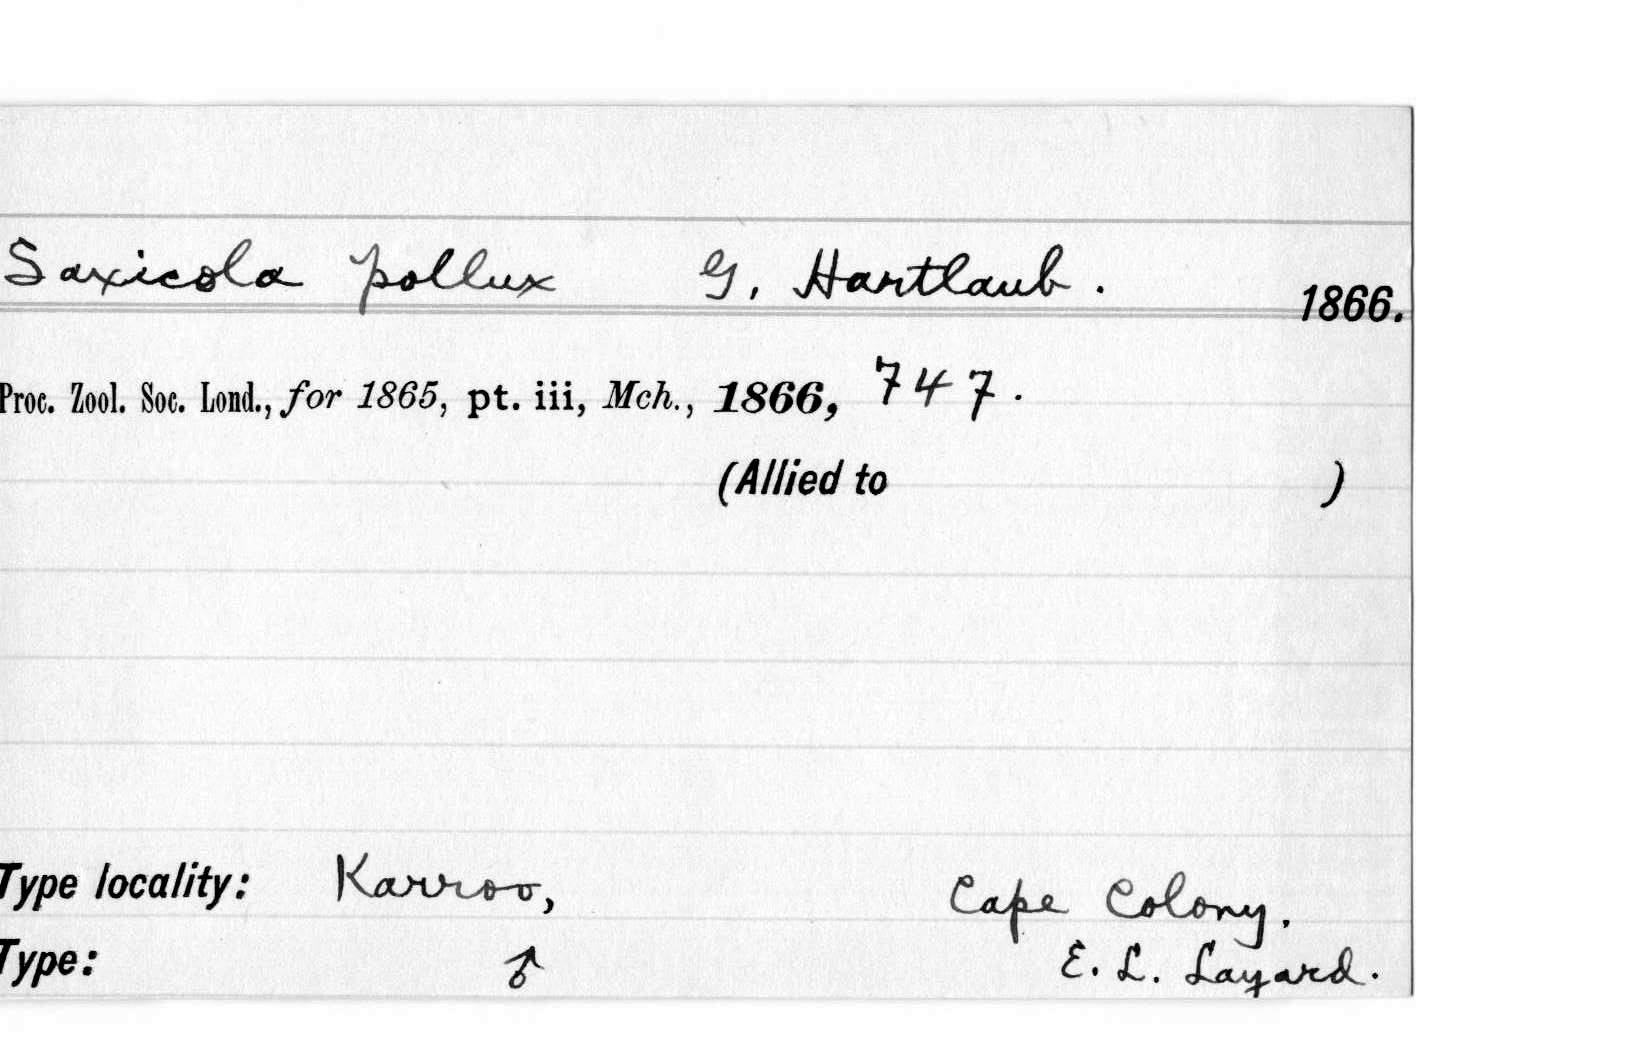 Saxicola pollux G. Hartlaub. 1866.
Proc. Zool. Soc. Lond., for 1865, pt. iii, Mch., 1866, 747.
(Allied to )
Type locality: Karroo, Cape Colony.
Type: ♂ E. L. Layard.